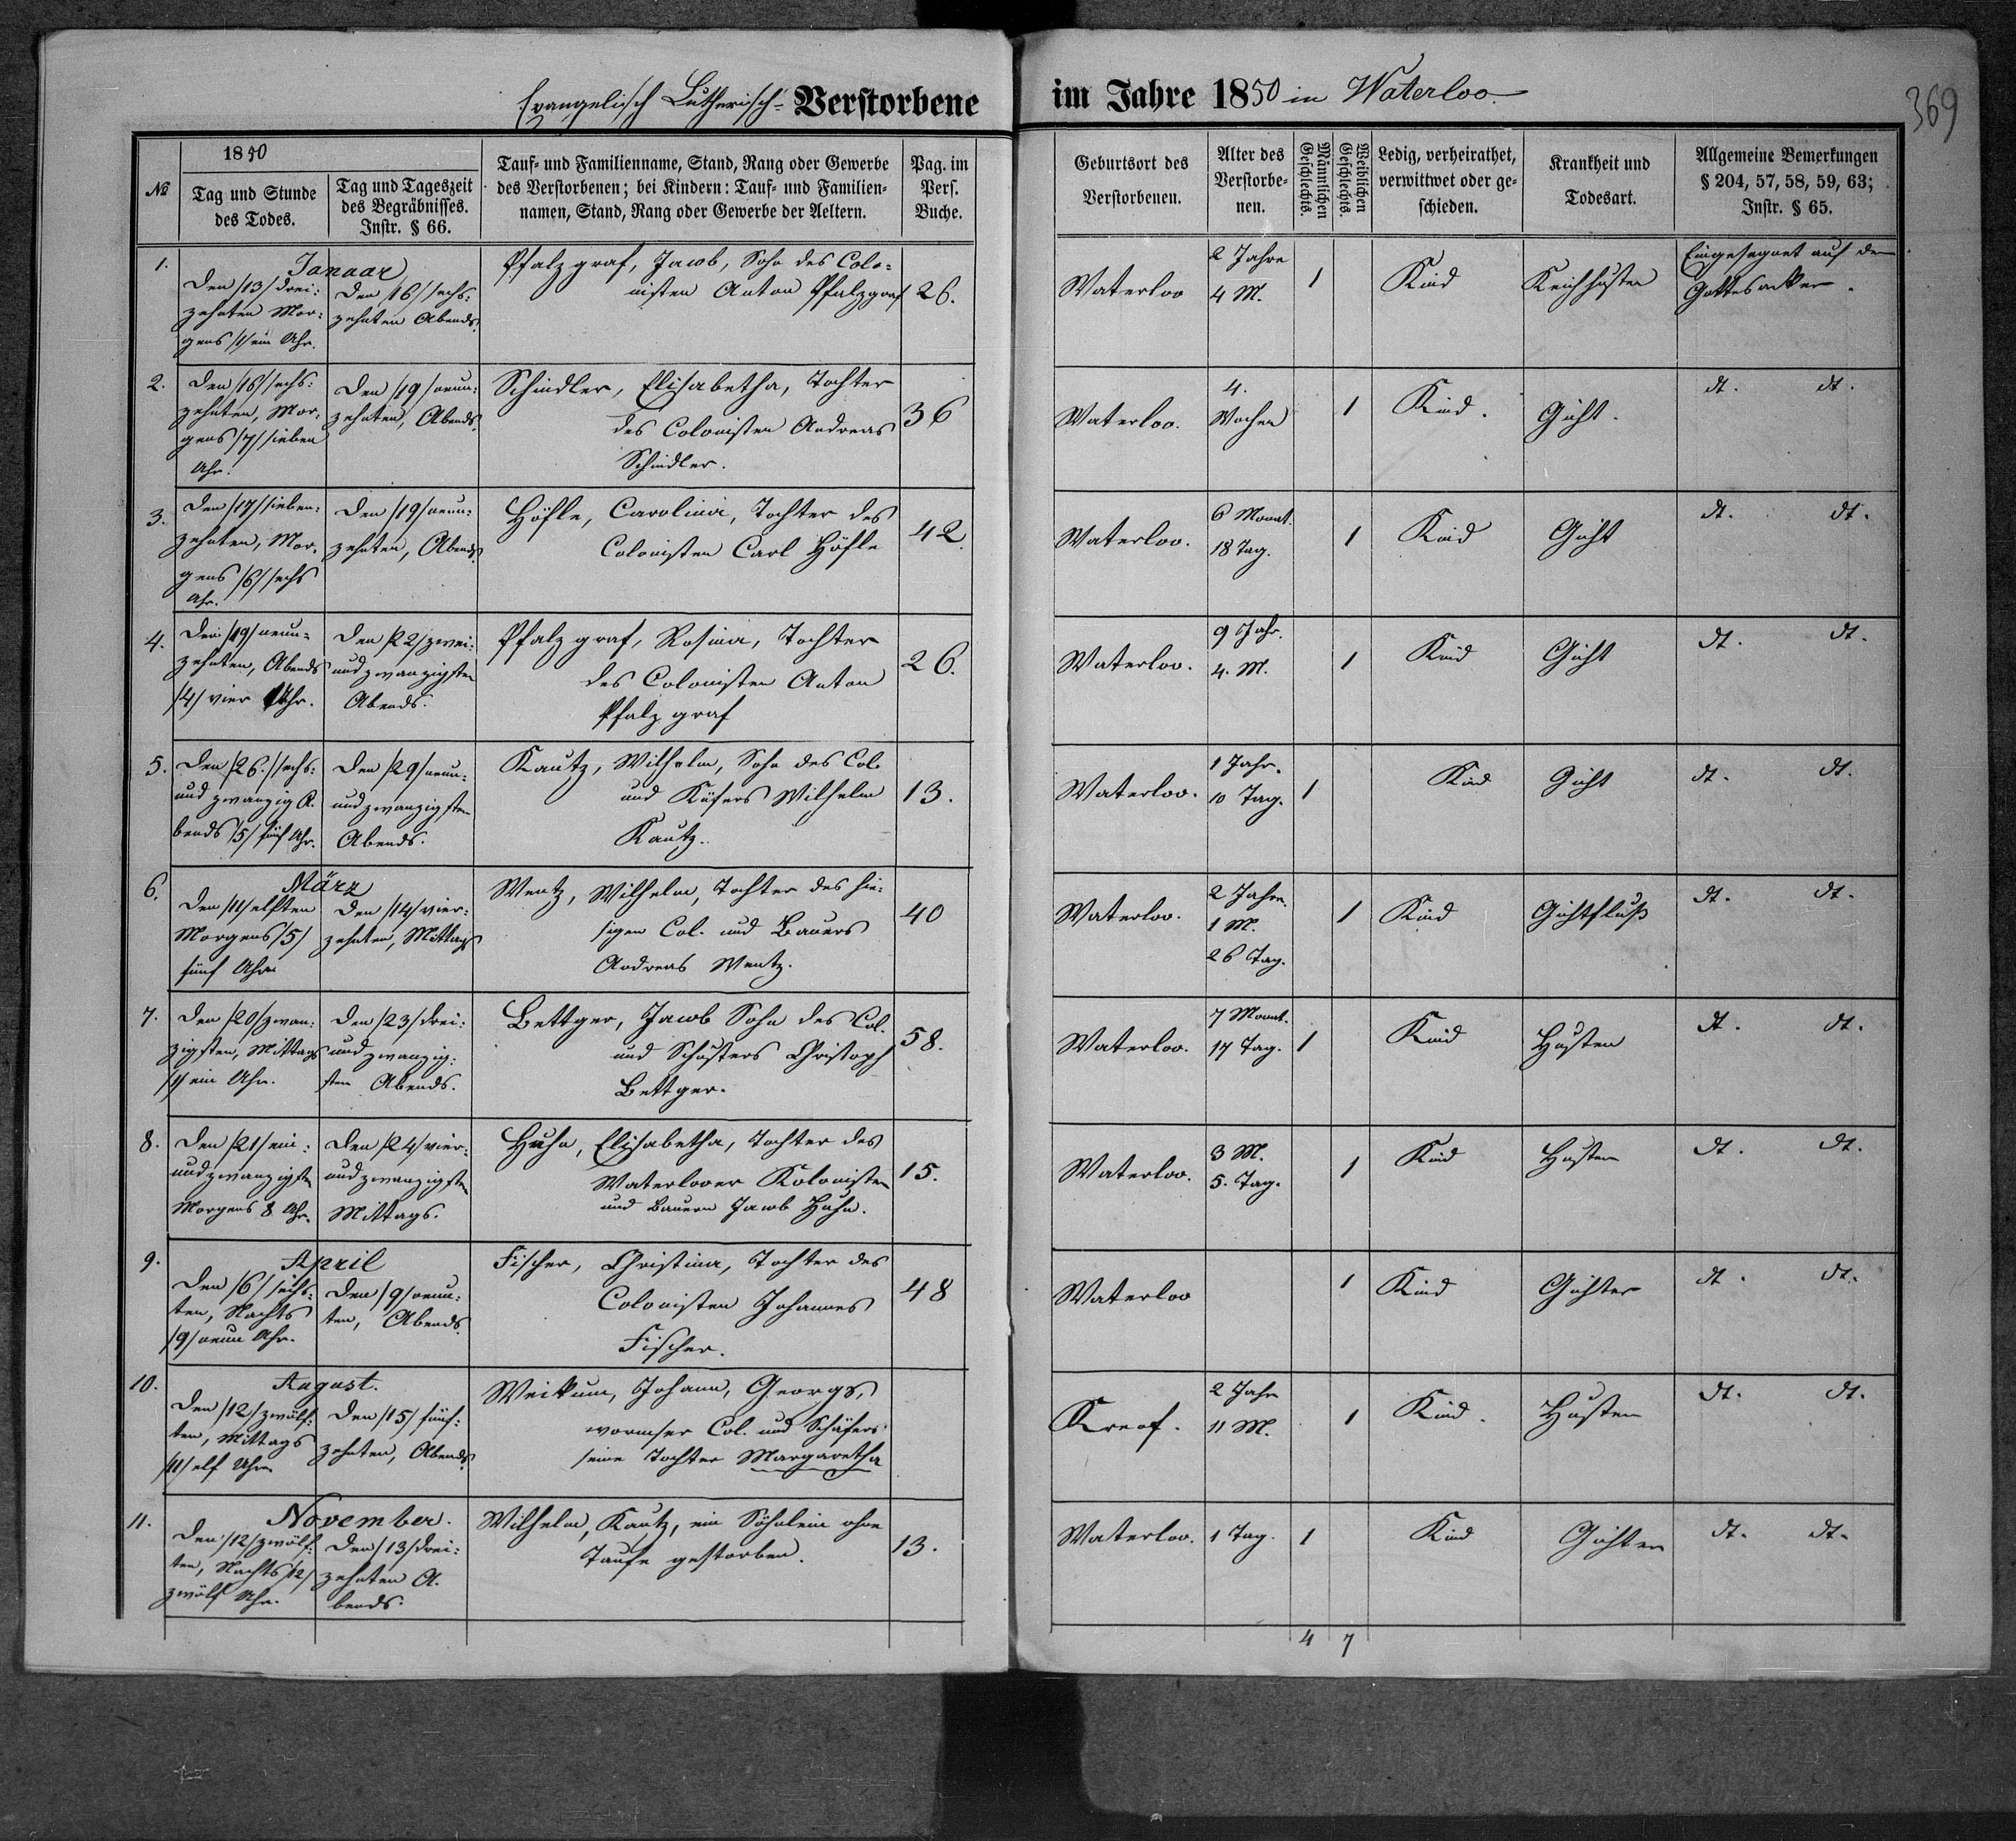 Evangelisch Lutherisch- Verstorbene im Jahre 1850 in Waterloo.
369
№
1850
Tag und Stunde des Todes.
Tag und Tageszeit des Begräbnisses. Instr. § 66.
Tauf- und Familienname, Stand, Rang oder Gewerbe
des Verstorbenen; bei Kindern: Tauf- und Familien-
namen, Stand, Rang oder Gewerbe der Aeltern.
Pag. im Pers. Buche.
Geburtsort des Verstorbenen.
Alter des Verstorbe-nen.
Männlichen Geschlechts.
Weiblichen Geschlechts.
Ledig, verheirathet, verwittwet oder ge-schieden.
Krankheit und Todesart.
Allgemeine Bemerkungen § 204, 57, 58, 59, 63; Instr. § 65.
1.
Januar
Den /13/ drei:
zehnten Mor:
gens /1/ ein Uhr.
Den /16/ sechs:
zehnten Abends.
Pfalzgraf, Jacob, Sohn des Colo:
nisten Anton Pfalzgraf
26.
Waterloo
2 Jahre
4 M.
1
Kind
Keichhusten
Eingesegnet auf dem
Gottesacker.
2.
Den /16/ sechs:
zehnten, Mor:
gens /7/ sieben
Uhr.
Den /19/ neun:
zehnten, Abends.
Schindler, Elisabetha, Tochter
des Colonisten Andreas
Schindler.
36
Waterloo.
4.
Wochen
1
Kind.
Gicht.
dt. dt.
3.
Den /17/ sieben:
zehnten, Mor.
gens /6/ sechs
Uhr.
Den /19/ neun:
zehnten, Abends.
Höfle, Carolina, Tochter des
Colonisten Carl Höfle
42.
Waterloo.
6 Monat.
18 Tag.
1
Kind
Gicht
dt. dt.
4.
Den /19/ neun-
zehnten, Abends
/4/ vier Uhr.
Den /22/ zwei:
undzwanzigsten
Abends.
Pfalzgraf, Rosina, Tochter
des Colonisten Anton
Pfalzgraf
26.
Waterloo.
9 Jahr.
4. M.
1
Kind
Gicht
dt. dt.
5.
Den /26./ sechs:
und zwanzig A.
bends /5/ fünf Uhr.
Den /29/ neun:
undzwanzigsten
Abends.
Kautz, Wilhelm, Sohn des Col.
und Küfers Wilhelm
Kautz.
13.
Waterloo.
1 Jahr.
10 Tag.
1
Kind
Gicht
dt. dt.
6.
März
Den /11/ elften
Morgens /5/
fünf Uhr
Den /14/ vier:
zehnten, Mittags
Wentz, Wilhelm, Tochter des hie:
sigen Col. und Bauers
Andreas Wentz.
40
Waterloo.
2 Jahre.
1 M.
26 Tag.
1
Kind
Gichtfluß
dt. dt.
7.
Den /20/ zwan:
zigsten, Mittags
/1/ ein Uhr.
Den /23/ drei:
und zwanzig:
sten Abends.
Bettger, Jacob Sohn des Col.
und Schusters Christoph
Bettger.
58.
Waterloo.
7 Monat.
17 Tag.
1
Kind
Husten
dt. dt.
8.
Den /21/ ein:
undzwanzigsten
Morgens 8 Uhr.
Den /24/ vier:
undzwanzigsten
Mittags.
Huhn, Elisabetha, Tochter des
Waterlooer Kolonisten
und Bauern Jacob Huhn.
15.
Waterloo.
3 M.
5. Tag.
1
Kind
Husten
dt. dt.
9.
April
Den /6/ sechs:
ten, Nachts
/9/ neun Uhr.
Den /9/ neun:
ten, Abends.
Fischer, Christina, Tochter des
Colonisten Johannes
Fischer.
48
Waterloo
1
Kind
Gichter
dt. dt.
10.
August.
Den /12/ zwölf:
ten, Mittags
/11/ elf Uhr
Den /15/ fünf:
zehnten, Abends.
Weikum, Johann, Georgs,
wormser Col. und Schäfers
seine Tochter Margaretha
2 Jahr
11 M.
1
Kind.
Husten
dt. dt.
11.
November.
Den /12/ zwölf:
ten, Nachts /12/
zwölf Uhr.
Den /13/ drei:
zehnten A.
bends.
Wilhelm, Kautz, ein Söhnlein ohne
Taufe gestorben.
13.
Waterloo.
1 Tag.
1
Kind
Gichter
dt. dt.
4 7